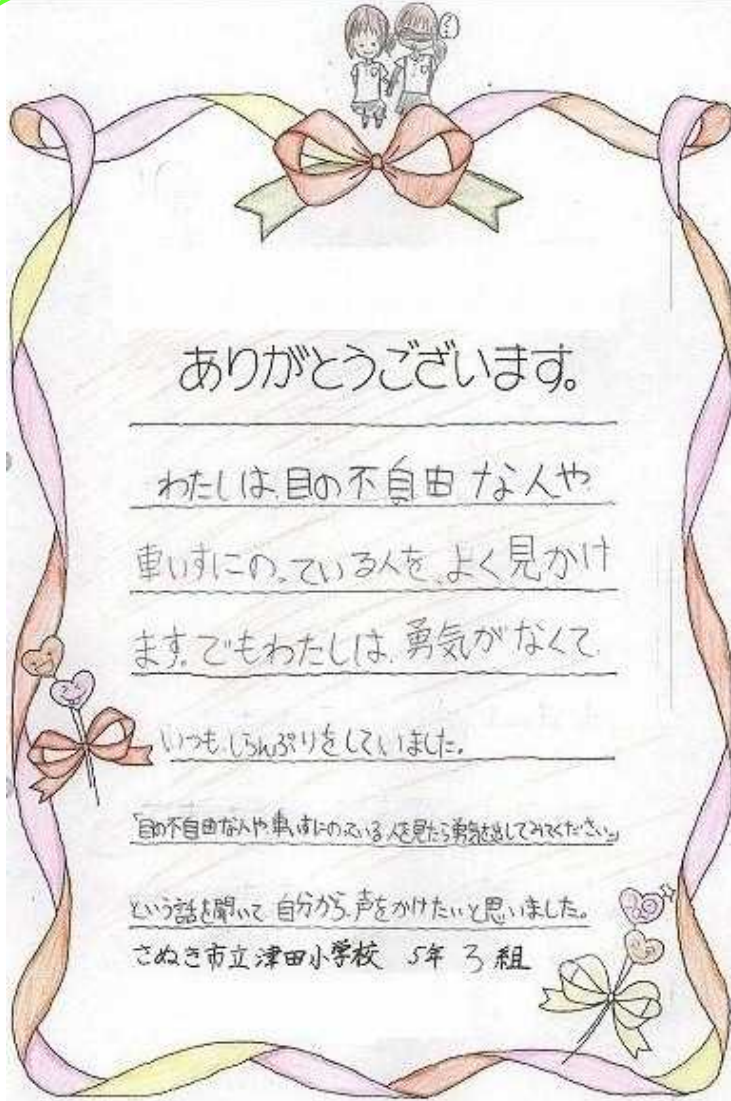 ありがとうございます。
わたしは、目の不自由な人や
車いすにのっている人を、よく見かけ
ます。でもわたしは、勇気がなくて
いつも、しらんぷりをしていました。
「目の不自由な人や、車いすにのっている人を見たら勇気を出してみてください。」
という話を聞いて、自分から、声をかけたいと思いました。
さぬき市立津田小学校 5年 ろ組